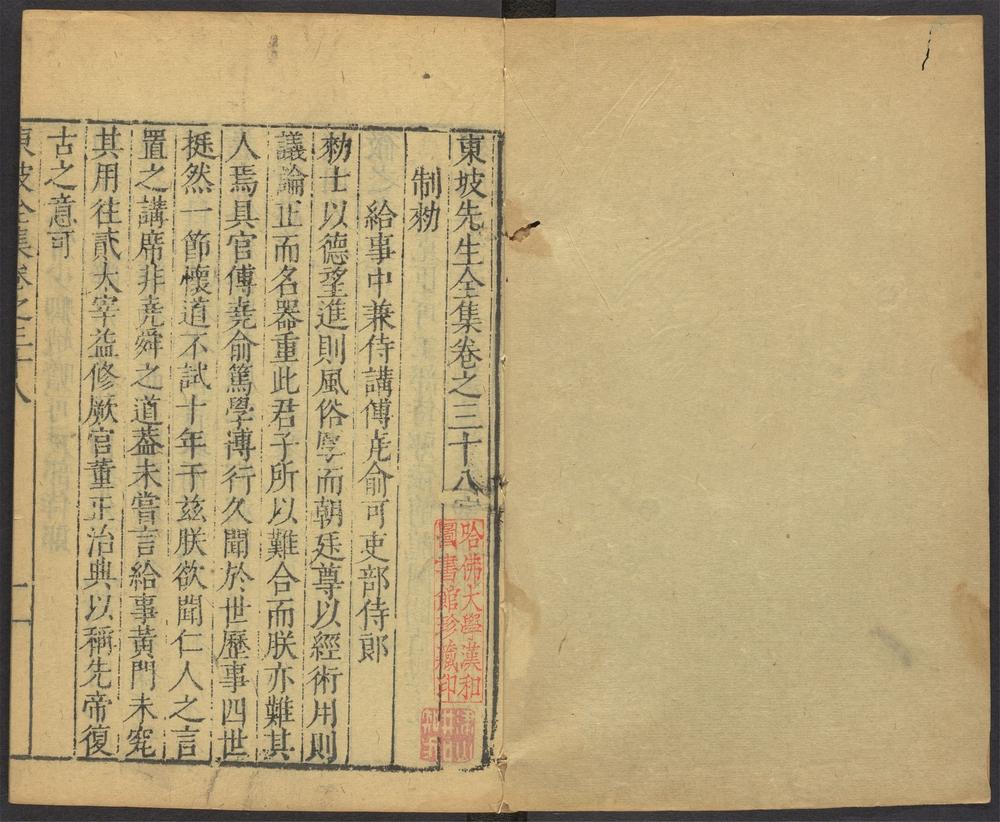 東坡先生全集卷之三十八
制勑
給事中兼侍講傅堯俞可吏部侍郎
勑士以德望進則風俗厚而朝廷尊以經術用則
議論正而名器重此君子所以難合而朕亦難其
人焉具官傅堯俞篤學溥行久聞於世歷事四世
挺然一節懷道不試十年于兹朕欲聞仁人之言
置之講席非堯舜之道葢未嘗言給事黃門未究
其用往貳太宰益修厥官董正治典以稱先帝復
古之意可
東坡全集卷之三十八
一
哈佛大學漢和
圖書館珍藏印